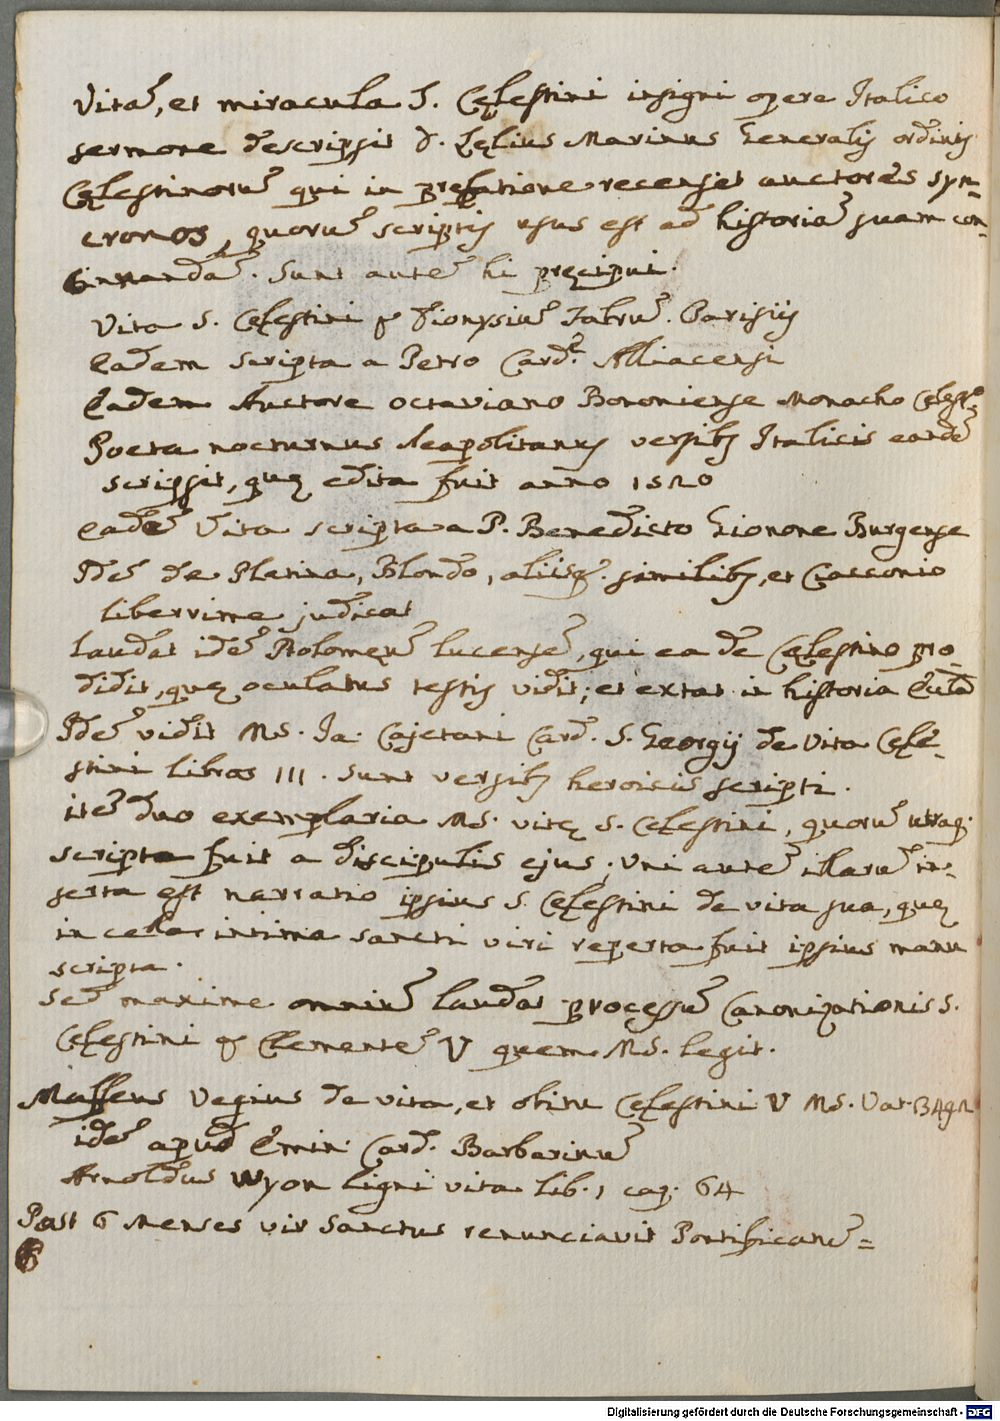 Vitā, et miracula S. Cęlestini insigni opere Italico
sermone descripsit D. Lęlius Marinus Generalis ordinis
Cęlestinorū qui in pręfatione recenset auctores syn-
cronos, quorū scriptis usus est ad historiā suam con-
cinnandā. Sunt autē hi pręcipui.
Vita S. Cęlestini p Dionysiū Fabrū. Parisijs
Eadem scripta a Petro Card.e Alliacensi
Eadem Auctore Octaviano Bononiense Monacho Celest.o
Poeta nocturnus Neapolitanus versibꝫ Italicis eandē
scripsit, quę edita fuit anno 1520
eadē Vita scripta a P. Benedicto Gionone Burgense
Idē de Platina, Blondo, aliisq. similibꝫ, et Ciacconio
liberrime judicat
laudat idē Ptolomęū lucensē, qui ea de Cęlestino pro-
didit, quę oculatus testis vidit; et extat in historia
Idē vidit MS. Ja. Cajetani Card. S. Georgij de vita Cęle-
stini libros III. sunt versibꝫ heroicis scripti.
itē duo exemplaria MS. vitę S. Cęlestini, quorū utraq.
scripta fuit a discipulis ejus; Uni autē illarū in-
serta est narratio ipsius S. Cęlestini de vita sua, quę
in cella intima sancti viri reperta fuit ipsius manu
scripta.
Sed maxime omniū laudat processū Canonizationis S.
Cęlestini p Clementē V quem MS. legit.
Maffeus Vegius de vita, et obitu Cęlestini V MS. Vat.
idē apud Emin. Card. Barbarinū
Arnoldus Wyon ligni vita lib. 1 cap. 64
Post 6 Menses vir Sanctus renunciavit Pontificatū =
Digitalisierung gefördert durch die Deutsche Forschungsgemeinschaft - DFG